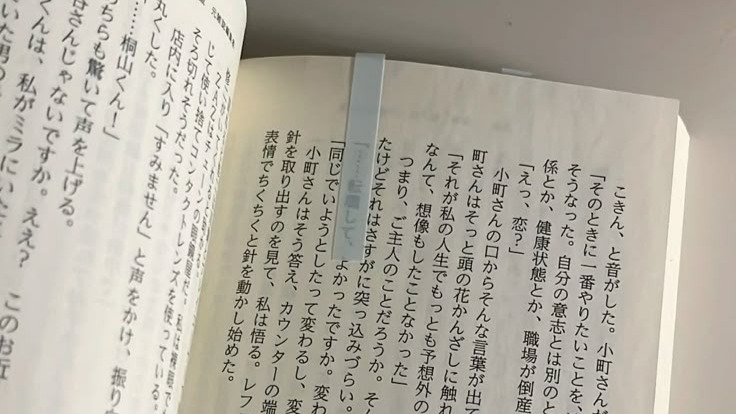 こきん、と音がした。小町さんが
「そのときに一番やりたいことを、
そうなった。自分の意志とは別のと
係とか、健康状態とか、職場が倒産
「えっ、恋？」
小町さんの口からそんな言葉が出て
町さんはそっと頭の花かんざしに触れ
「それが私の人生でもっとも予想外の
なんて、想像もしたことなかった」
つまり、ご主人のことだろうか。そん
たけどそれはさすがに突っ込みづらい。
「……転職して、よかったですか。変わ
「同じでいようとしたって変わるし、変
小町さんはそう答え、カウンターの端
針を取り出すのを見て、私は悟る。レフ
表情でちくちくと針を動かし始めた。
じて使い捨てコンタクトレンズを使っている。
そろ切れそうだった。
店内に入り「すみません」と声をかけ、振り向
丸くした。
「……桐山くん！」
ちらも驚いて声を上げる。
谷さんじゃないですか。ええ？　このお近
くんは、私がミラにいた